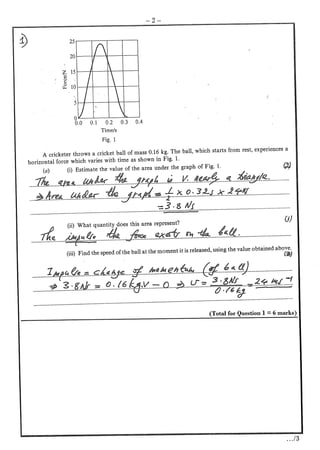 – 2 –
1)
25
20
15
10
5
0
Force/N
0.0 0.1 0.2 0.3 0.4
Time/s
Fig. 1
A cricketer throws a cricket ball of mass 0.16 kg. The ball, which starts from rest, experiences a
horizontal force which varies with time as shown in Fig. 1.
(a) (i) Estimate the value of the area under the graph of Fig. 1. (2)
The area under the graph is V. nearly a triangle.
⇒ Area under the graph = 1/2 × 0.32s × 24N
= 3.8 Ns
(ii) What quantity does this area represent? (1)
The impulse the force exerts on the ball.
(iii) Find the speed of the ball at the moment it is released, using the value obtained above.
(3)
Impulse = change of momentum (of ball)
⇒ 3.8Ns = 0.16kg.V – 0 ⇒ v = 3.8Ns / 0.16kg = 24 ms⁻¹
(Total for Question 1 = 6 marks)
.../3